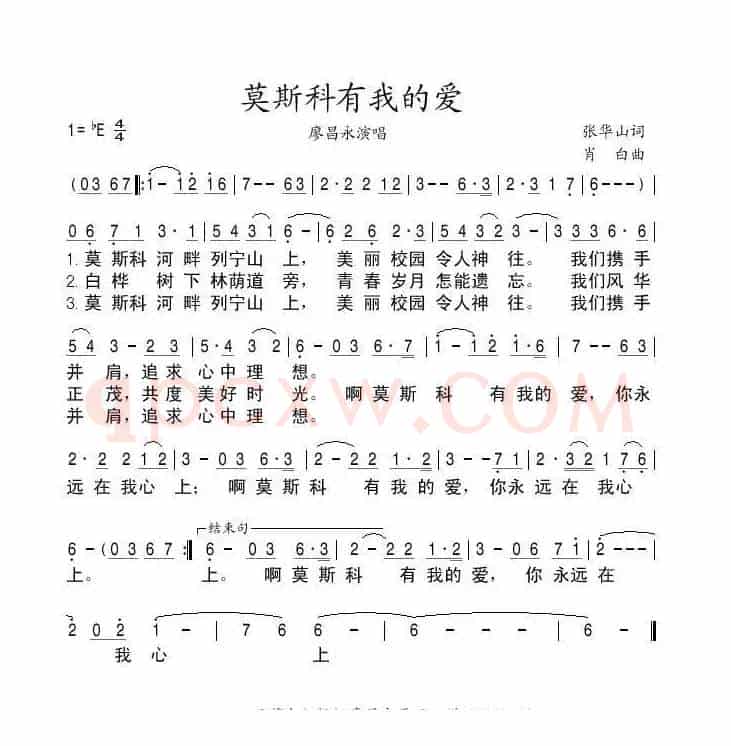 莫斯科有我的爱
1= ♭E 4/4
廖昌永演唱
张华山词
肖 白曲
(03 67 ‖: i - i2 i6 | 7 - - 63 | 2 · 2 2 12 | 3 - - 6·3 | 2 · 3 1 7 | 6 - - - ) |
06 71 3 · 1 | 54 31 3 - | 62 6 2·3 | 54 32 3 - | 33 36 |
1.莫斯科 河 畔 列宁山 上， 美 丽 校园 令人神 往。 我们携 手
2.白 桦 树 下 林荫道 旁， 青 春 岁月 怎能遗 忘。 我们风 华
3.莫斯科 河 畔 列宁山 上， 美 丽 校园 令人神 往。 我们携 手
54 3 - 2 | 5·4 32 | 6 - 03 6·7 | i - i2 i·6 | 7 - - 63 |
并 肩，追 求 心中理 想。
正 茂，共度 美好时 光。 啊莫斯 科 有我的 爱，你永
并 肩，追 求 心中理 想。
2 · 2 2 12 | 3 - 03 6·3 | 2 - 22 1·2 | 3 - - 71 | 2 · 32 17 76 |
远在我心 上； 啊莫斯科 有我的 爱，你永远在 我心
结束句
6 - (03 67 :‖ 6 - 03 6·3 | 2 - 22 1·2 | 3 - 06 71 | 2 - - - |
上。 上。 啊莫斯科 有我的 爱， 你 永远在
2 02 1 - | 7 6 7 | 6 - - - | 6 - - - | 6 - - - ‖
我心 上
qpcxw.COM